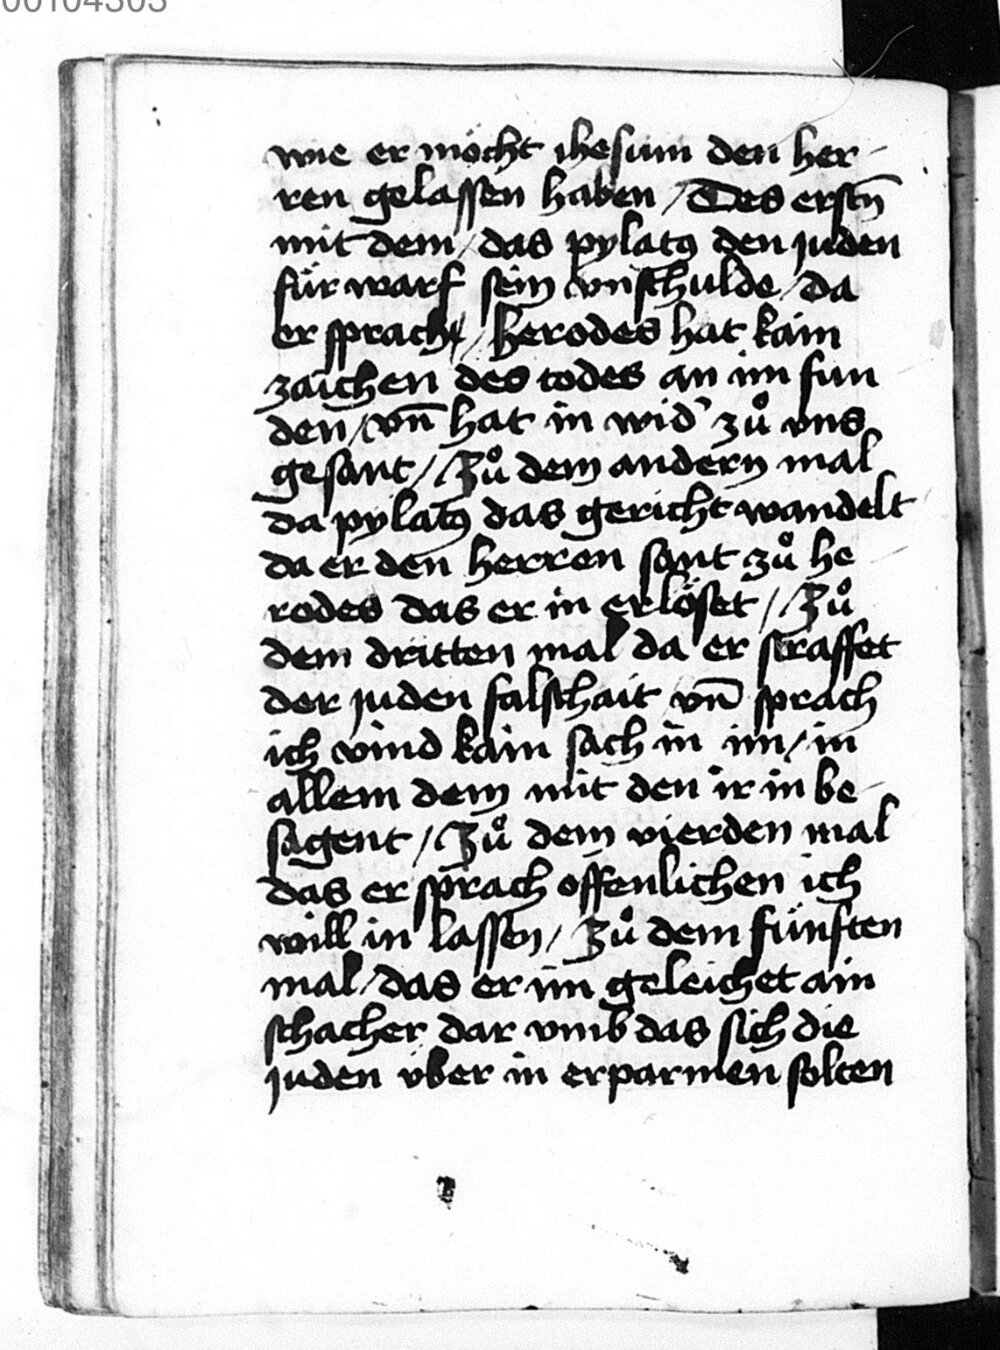 00104303
wie er möcht ihesum den her-
ren gelassen haben / Des erstn̄
mit dem / das pylatꝯ den juden
für warf sein vnschulde / da
er sprach / herodes hat kain
zaichen des todes an im fun
den / vn̄ hat in wid' zů vns
gesant / Zů dem andern mal
da pylatꝯ das gericht wandelt
da er den herren sant zů he
rodes das er in erlöset / Zů
dem dritten mal da er straffet
der juden falschait / vn̄ sprach
ich vind kain sach in im / in
allem dem mit den ir in be-
sagent / Zů dem vierden mal
das er sprach offenlichen ich
will in lassen / Zů dem fünften
mal / das er im geleichet ain
schacher dar vmb das sich die
juden über in erparmen solten